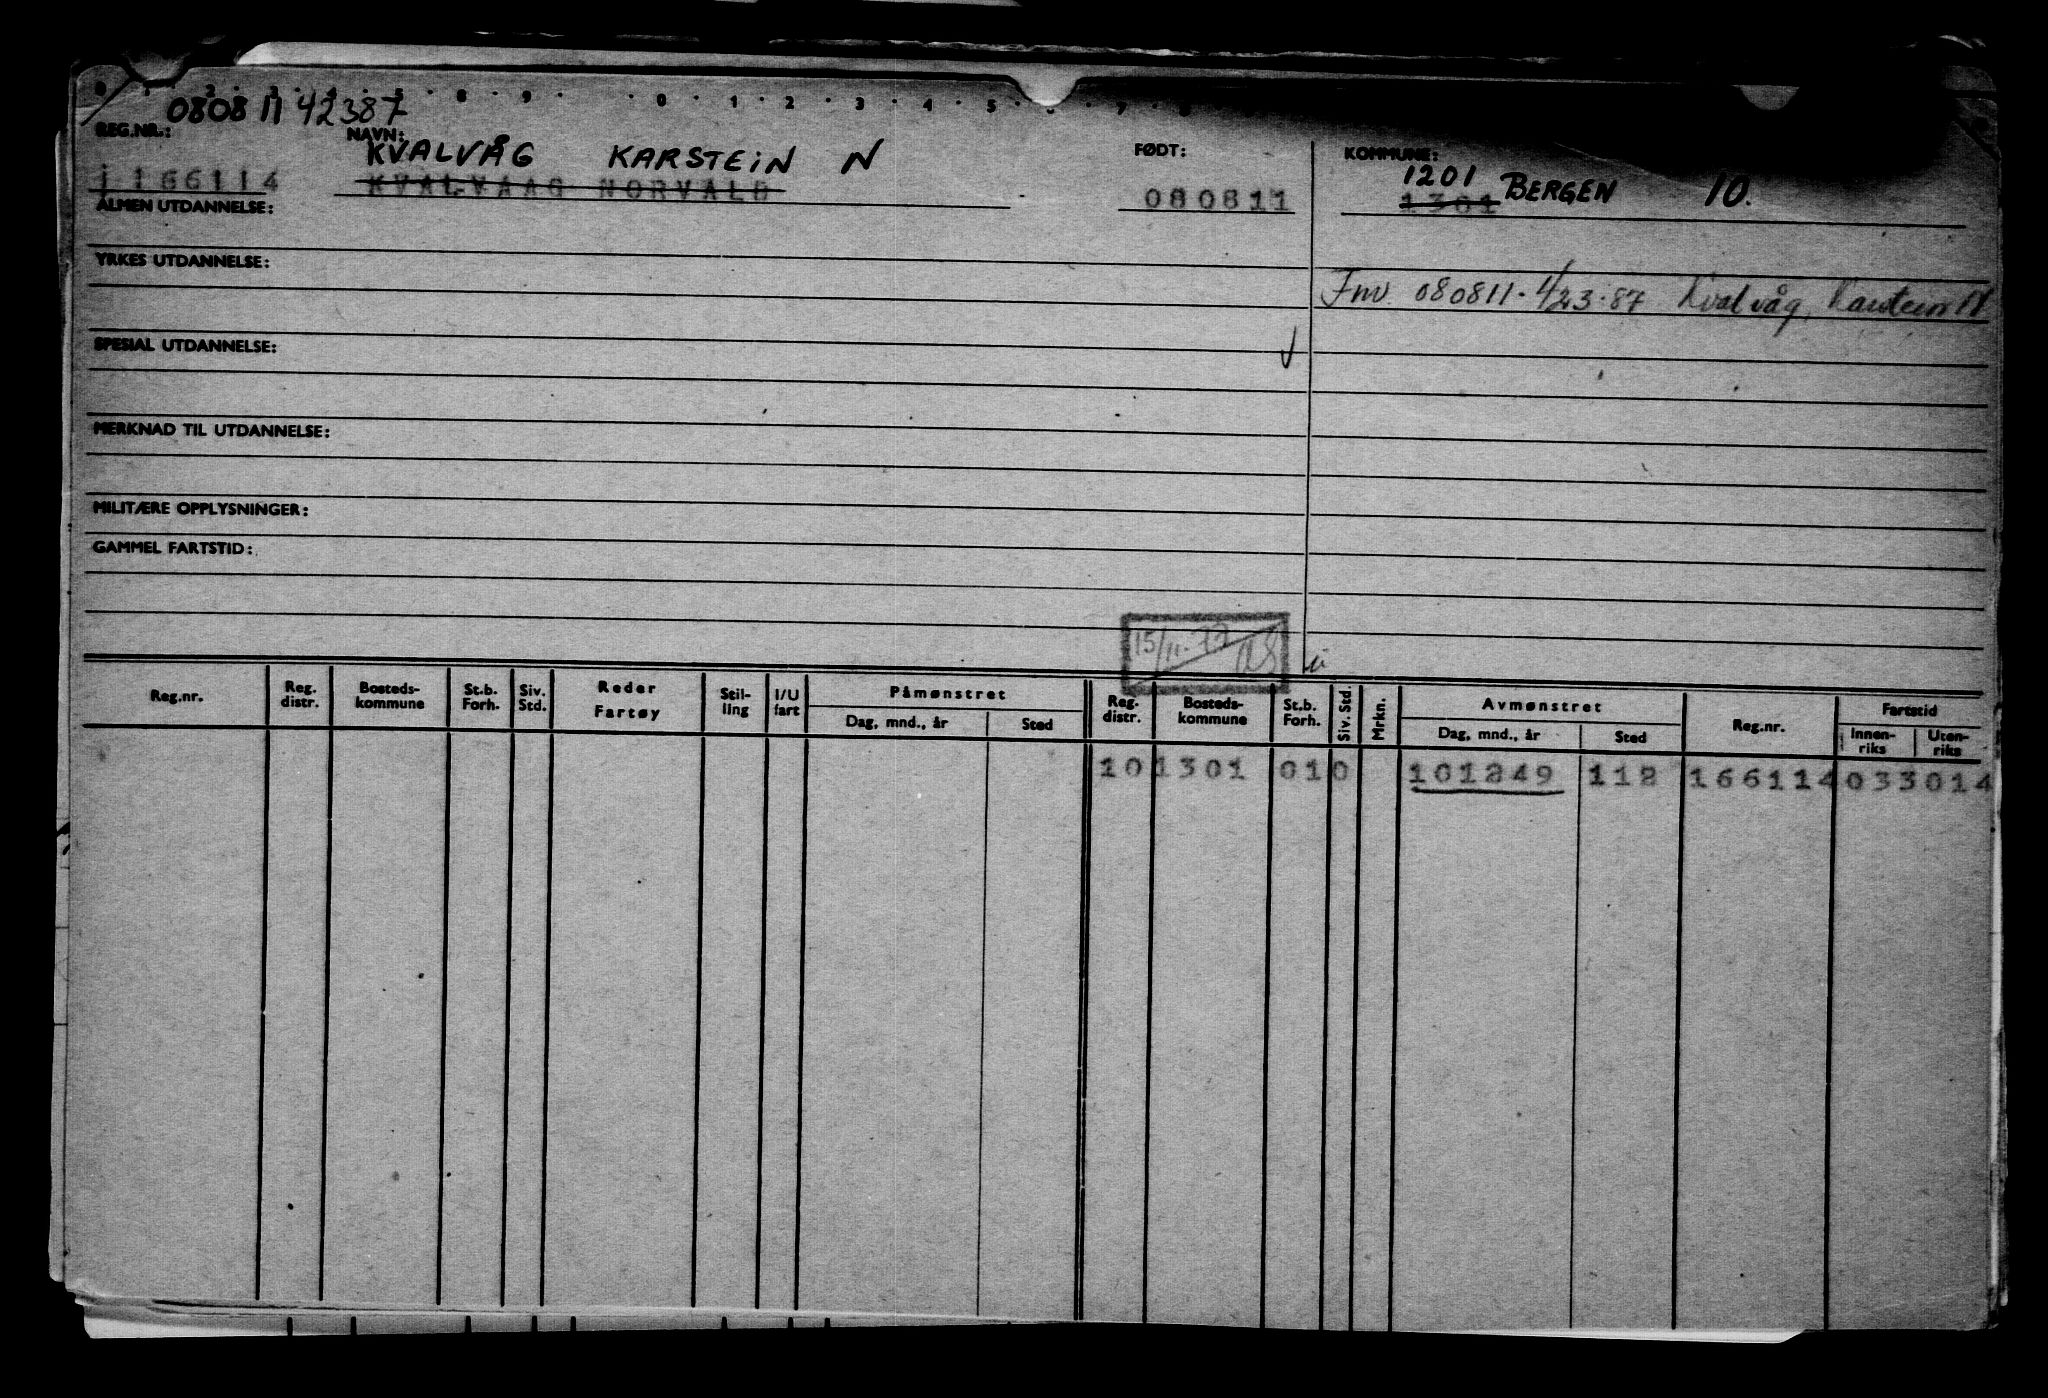 080811 42387
REG.NR.: NAVN: FØDT: KOMMUNE:
KVALVÅG KARSTEIN N 1201 BERGEN 10.
i 166114 KVALVAAG NORVALD 080811 1301
ALMEN UTDANNELSE:
YRKES UTDANNELSE:
Fnv. 080811. 423.87 Kvalvåg, Karstein N
SPESIAL UTDANNELSE:
MERKNAD TIL UTDANNELSE:
MILITÆRE OPPLYSNINGER:
GAMMEL FARTSTID:
15/11-77
Reg.nr. Reg. distr. Bosteds-kommune St.b. Forh. Siv. Std. Reder Fartøy Stil-ling I/U fart Påmønstret Dag, mnd., år Sted Reg. distr. Bosteds-kommune St.b. Forh. Siv. Std. Mrkn. Avmønstret Dag, mnd., år Sted Reg.nr. Fartstid Innen-riks Uten-riks
10 1301 01 0 101249 112 166114 033 014